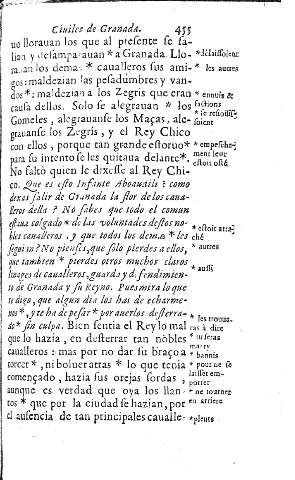 Ciuiles de Granada. 455
uo llorauan los que al presente se sa-
lian y desamparauan * a Granada. Llo- * délaissoient
rauan los demas * caualleros sus ami- * les autres
gos: maldezian las pesadumbres y van-
dos *; maldezian a los Zegris que eran * ennuis &
causa dellos. Solo se alegrauan * los factions
Gomeles, alegrauanse los Maças, ale- * se resouïs-
grauanse los Zegris, y el Rey Chico soient
con ellos, porque tan grande estoruo * * empesche-
para su intento se les quitaua delante*. ment leur
No faltò quien le dixesse al Rey Chi- estoit osté
co. Que es esto Infante Aboauili? como
dexas salir de Granada la flor de los caua-
lleros della? No sabes que todo el comun
estaua colgado * de las voluntades destos no- * estoit atta-
bles caualleros, y que todos los demas * les ché
seguian? No pienses, que solo pierdes a ellos, * autres
que tambien * pierdes otros muchos claros
linages de caualleros, guarda y defendimien- * aussi
to de Granada y su Reyno. Pues mira lo que
te digo, que algun dia los has de echar me-
nos *, y te ha de pesar * por auerlos desterra- * les trouue-
do * sin culpa. Bien sentia el Rey lo mal ras à dire
que lo hazia, en desterrar tan nobles * tu seras
caualleros: mas por no dar su braço a marry
torcer *, ni boluer atras * lo que tenia * bannis
començado, hazia sus orejas sordas, * pour ne se
aunque es verdad que oya los llan- laisser em-
tos * que por la ciudad se hazian, por porter
el ausencia de tan principales caualle- * ne tourner
en arriere
* pleurs